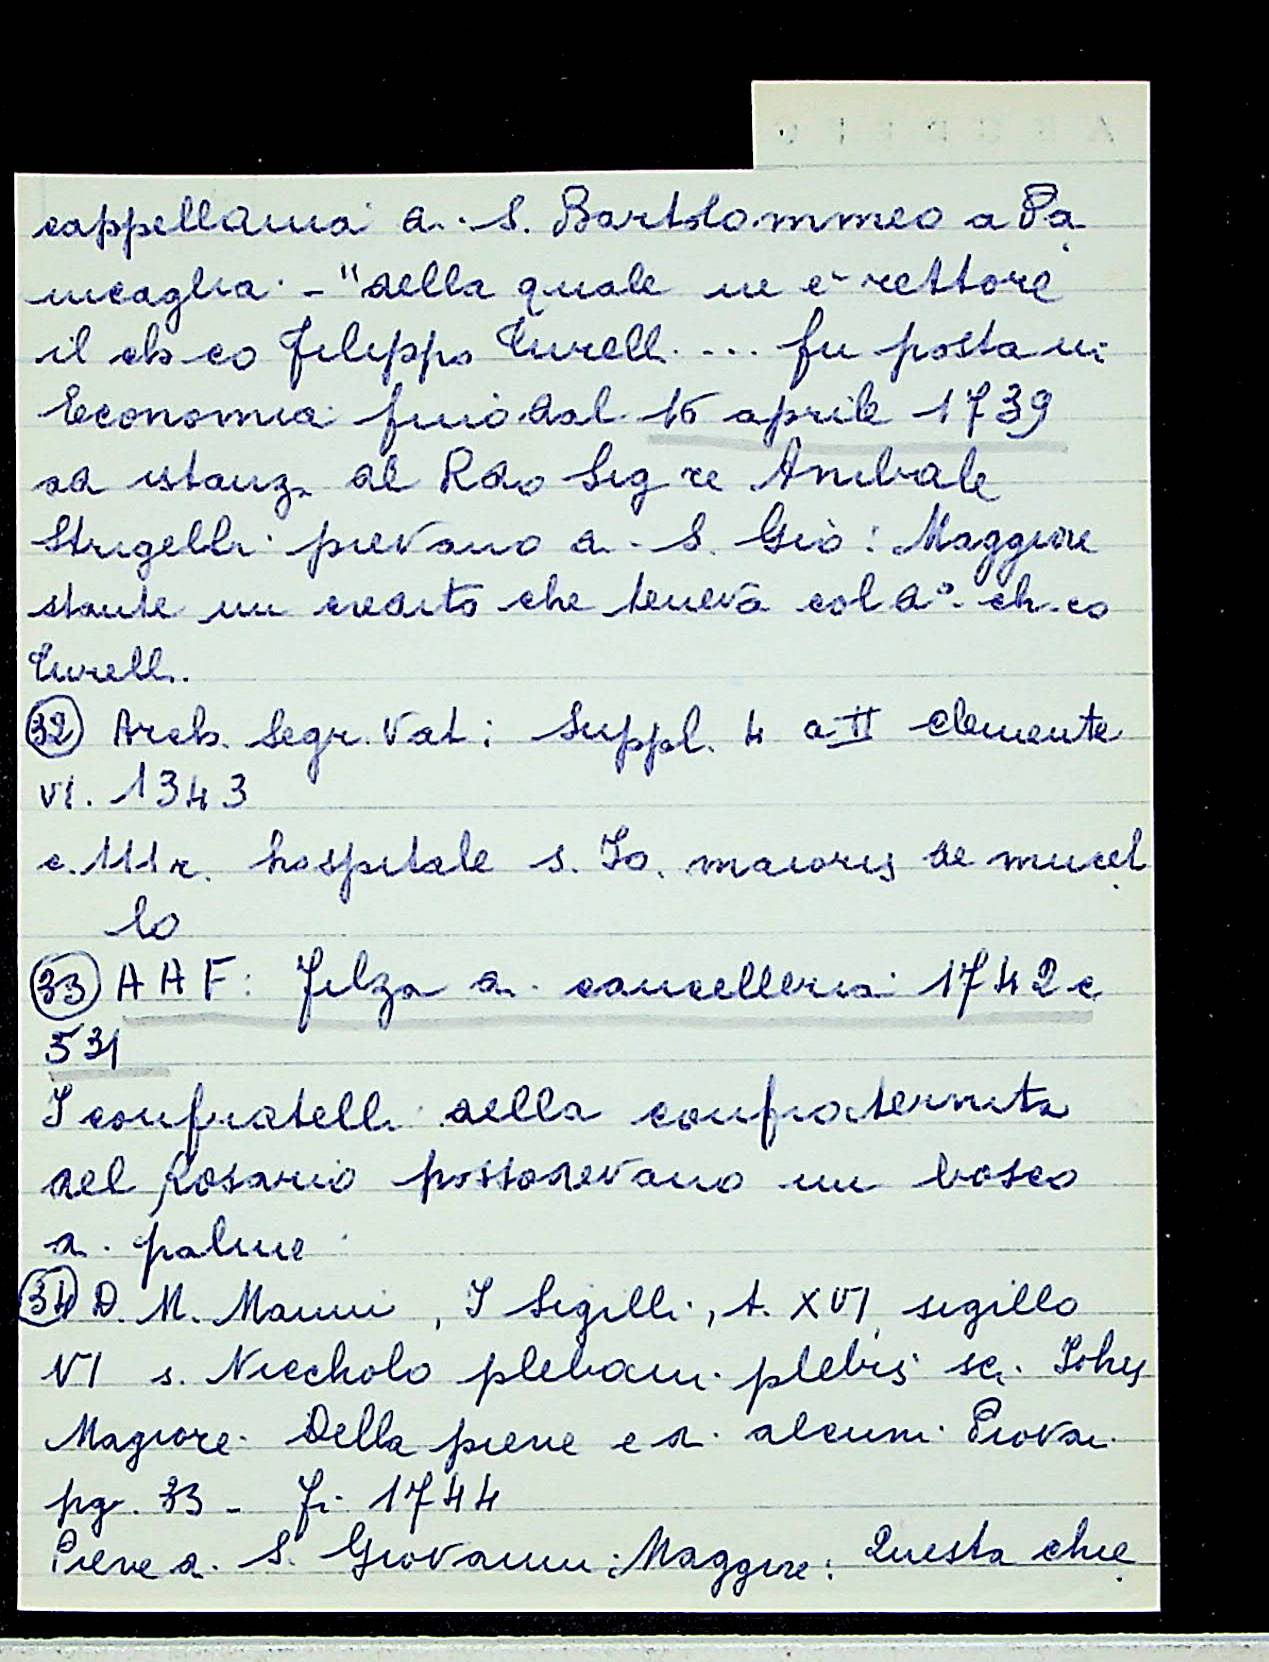 cappellania di S. Bartolommeo a Pa
nicaglia - "della quale ne è rettore
il ch co Filippo Turelli ... fu posta in
Economia fino dal 16 aprile 1739
ad istanza del Rdo Sig re Anibale
Strigelli pievano di S. Gio: Maggiore
stante un credito che teneva col do. ch. co
Turelli.
32 Arch. Segr. Vat: Suppl. 4 a II Clemente
VI. 1343
c. 111 r. hospitale s. Jo. maioris de mucel
lo
33 AAF: Filza di cancelleria 1742 c
531
I confratelli della confraternita
del Rosario possedevano un bosco
a paline
34 D. M. Manni, I Sigilli, t. XVI, sigillo
VI s. Niccholo plebani plebis sci. Johis
Magiore. Della pieve e di alcuni Piovani
pg. 33 - Fi. 1744
Pieve di S. Giovanni Maggiore: Questa chie